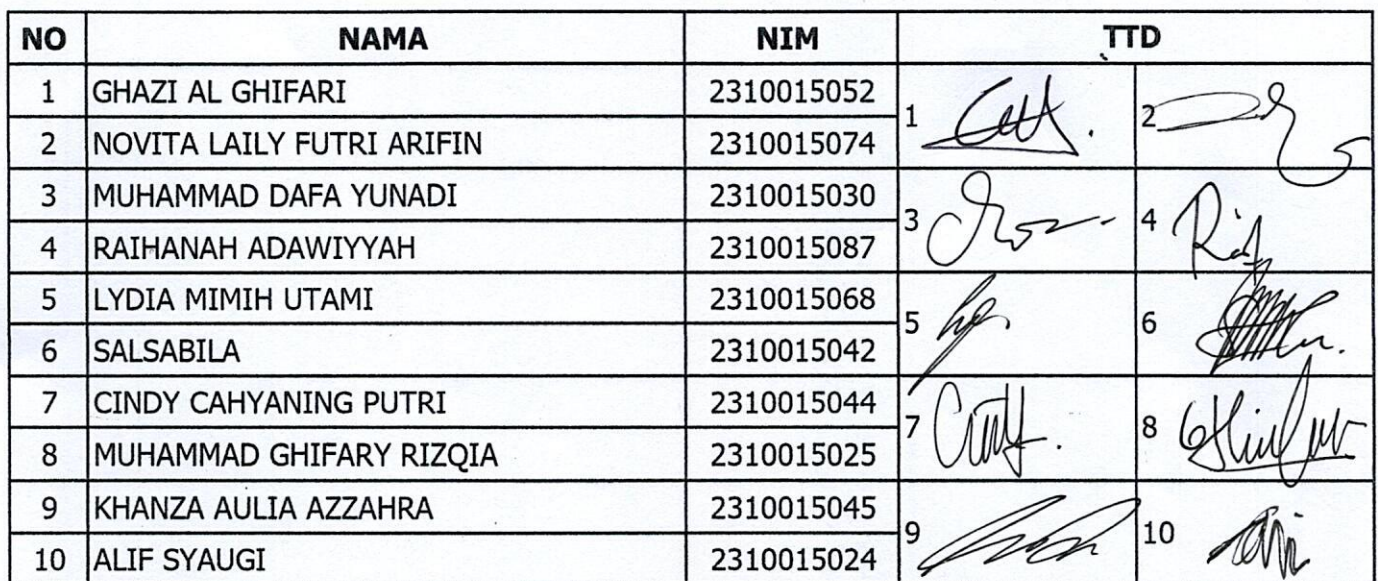 NO NAMA NIM TTD
1 GHAZI AL GHIFARI 2310015052
1 2
2 NOVITA LAILY FUTRI ARIFIN 2310015074
3 MUHAMMAD DAFA YUNADI 2310015030
3 4
4 RAIHANAH ADAWIYYAH 2310015087
5 LYDIA MIMIH UTAMI 2310015068
5 6
6 SALSABILA 2310015042
7 CINDY CAHYANING PUTRI 2310015044
7 8
8 MUHAMMAD GHIFARY RIZQIA 2310015025
9 KHANZA AULIA AZZAHRA 2310015045
9 10
10 ALIF SYAUGI 2310015024